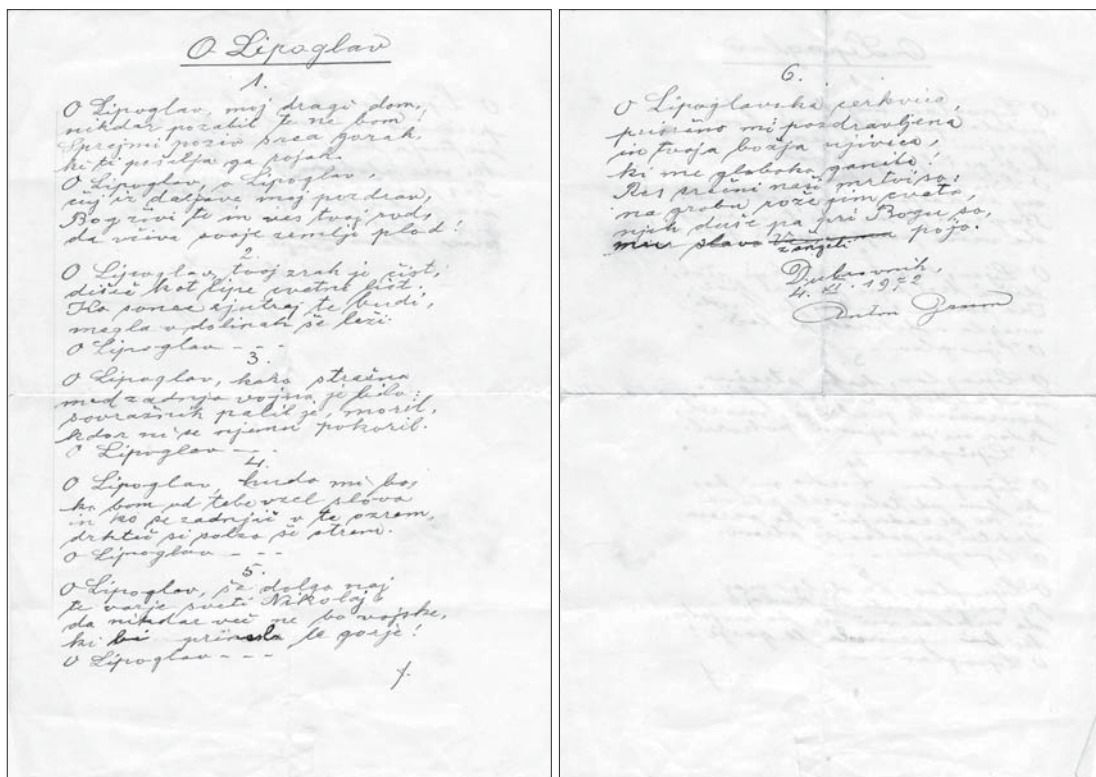 O Lipoglav
1.
O Lipoglav, moj dragi dom,
nikdar pozabil te ne bom!
Sprejmi poziv srca gorak,
ki ti pošilja ga rojak.
O Lipoglav, o Lipoglav,
čuj iz daljave moj pozdrav,
Bog živi te in ves tvoj rod,
da uživa svoje zemlje plod!
2.
O Lipoglav, tvoj zrak je čist,
dišeč kot lipe cvetni list.
Ko sonce zjutraj te budi,
megla v dolinah še leži.
O Lipoglav - - -
3.
O Lipoglav, kako strašno
med zadnjo vojno je bilo:
sovražnik palil je, moril,
kdor ni se njemu pokoril.
O Lipoglav - - -
4.
O Lipoglav, hudo mi bo,
ko bom od tebe vzel slovo
in ko se zadnjič v te ozrem,
drhteč si solzo še otrem.
O Lipoglav - - -
5.
O Lipoglav, še dolgo naj
te varje sveti Nikolaj
da nikdar več ne bo vojske,
ki bi prinesla le gorje!
O Lipoglav - - -
./.
6.
O Lipoglavska cerkvica,
prisrčno mi pozdravljena
in tvoja božja njivica,
ki me globoko gane!
Res srečni naši mrtvi so:
na grobu rože jim cveto,
njih duše pa pri Bogu so,
mu slavo z angeli pojo.
Dubrovnik,
1972
Anton